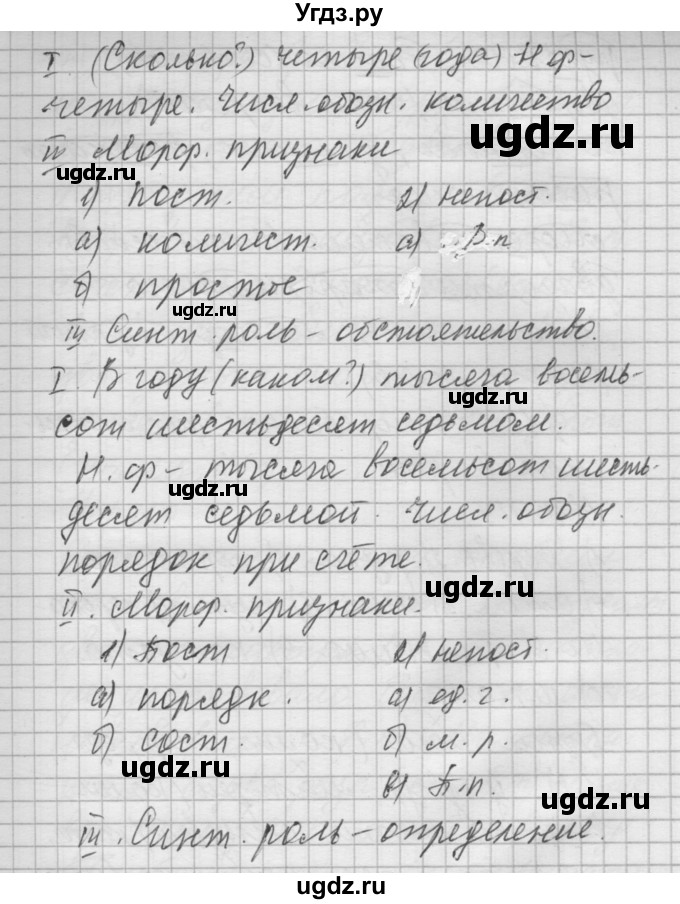 Угдз.ру
I. (Сколько?) четыре (года) Н.ф–
четыре. Числ. обозн. количество
ugdz.ru
II Морф. признаки
ugdz.ru
1) пост. 2) непост.
а) количест. а) В.п.
б) простое
ugdz.ru
III Синт. роль – обстоятельство.
I. В году (каком?) тысяча восемь-
ugdz.ru
сот шестьдесят седьмом.
Н.ф – тысяча восемьсот шесть-
ugdz.ru
десят седьмой. Числ. обозн.
порядок при счёте.
ugdz.ru
II. Морф. признаки.
1) Пост 2) непост.
а) порядк. а) ед. г.
б) сост. б) м. р.
ugdz.ru
в) П.п.
ugdz.ru
III. Синт. роль – определение.
ugdz.ru
ugdz.ru